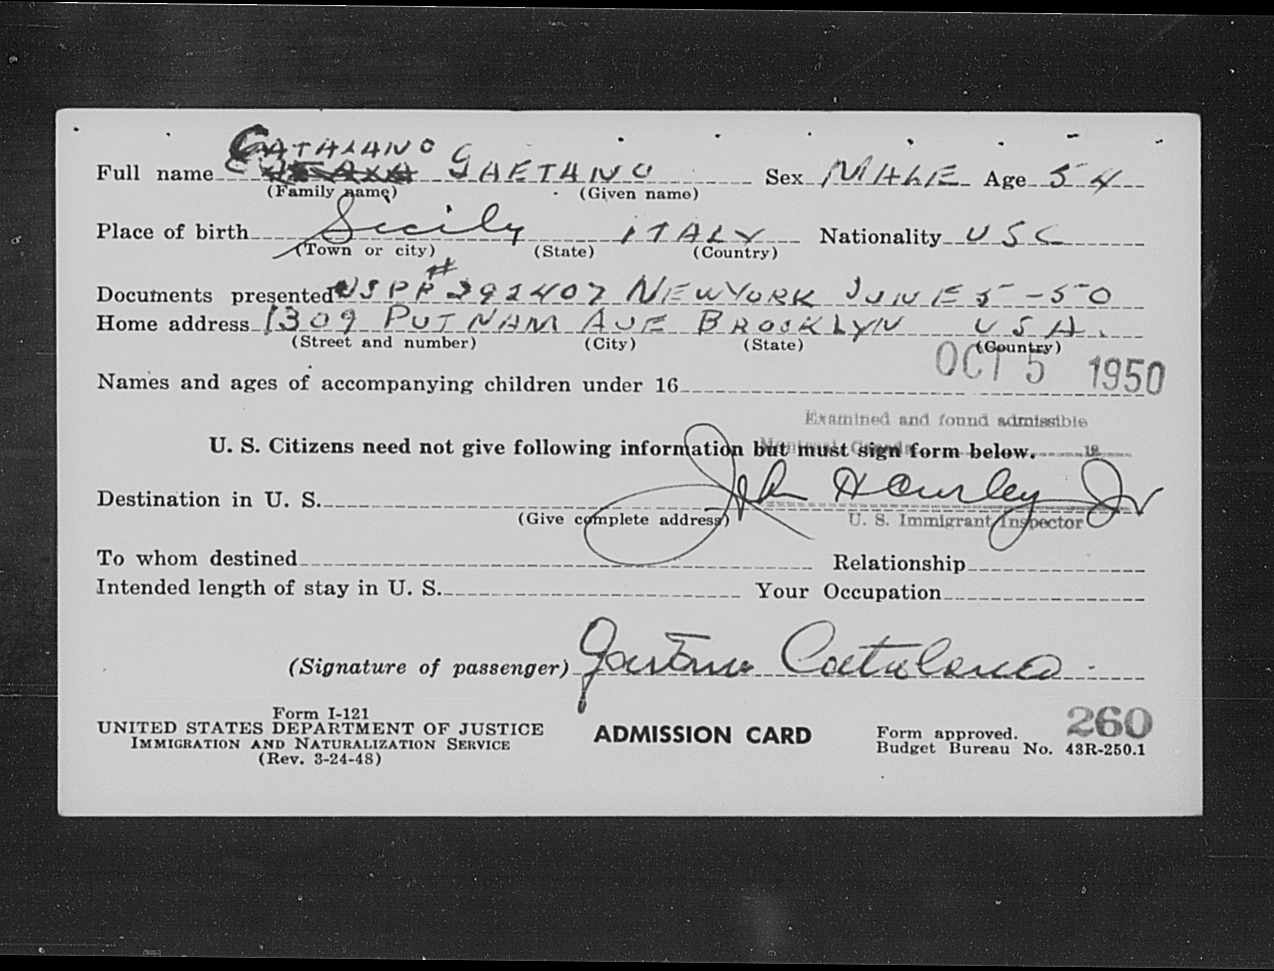 CATALANO
Full name GAETANO Sex MALE Age 54
(Family name) (Given name)
Place of birth Sicily ITALY Nationality USC
(Town or city) (State) (Country)
Documents presented USPP # 292407 NEW YORK JUNE 5-50
Home address 1309 PUTNAM AVE BROOKLYN USA.
(Street and number) (City) (State) (Country)
OCT 5 1950
Names and ages of accompanying children under 16
Examined and found admissible
U. S. Citizens need not give following information but must sign form below.
Montreal Canada 19
John Hawley Jr
Destination in U. S.
(Give complete address) U. S. Immigrant Inspector
To whom destined Relationship
Intended length of stay in U. S. Your Occupation
(Signature of passenger) Gaetano Catalano
Form I-121
UNITED STATES DEPARTMENT OF JUSTICE
IMMIGRATION AND NATURALIZATION SERVICE
(Rev. 3-24-48)
ADMISSION CARD
260
Form approved.
Budget Bureau No. 43R-250.1